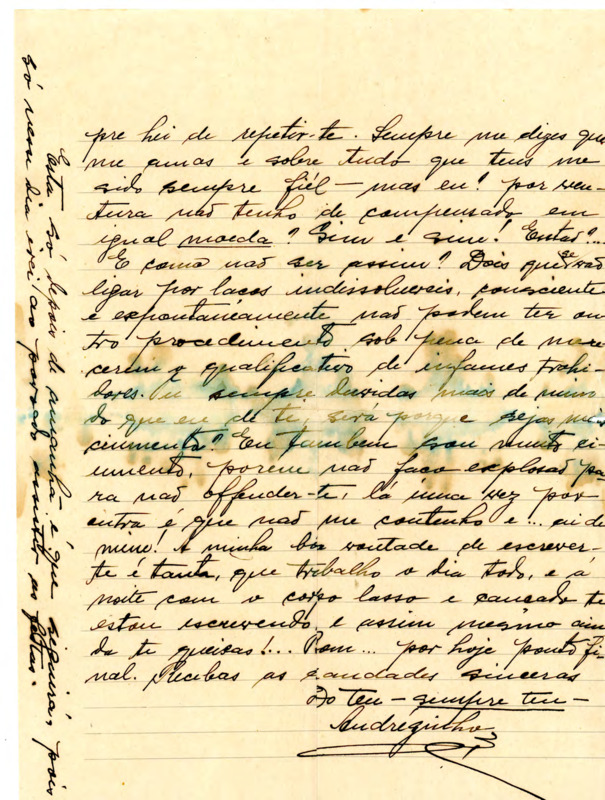 pre hei de repetir-te. Sempre me dizes que
me amas e sobre tudo que tens me
sido sempre fiél — mas eu? por ven-
tura não tenho de compensado em
igual moeda? Sim e sim! Então?...
E como não ser assim? Dois que se vão
ligar por laços indissoluveis, consciente
e expontaneamente não podem ter ou-
tro procedimento sob pena de mere-
cerem o qualificativo de infames trahi-
dores. Tu sempre duvidas mais de mim
do que eu de ti, será porque sejas mais
ciumenta? Eu tambem sou muito ci-
umento, porem não faço explosão pa-
ra não offender-te, lá uma vez por
outra é que não me contenho e... ai de
mim! A minha boa vontade de escrever-
te é tanta, que trabalho o dia todo, e á
noite com o corpo lasso e cançado te
estou escrevendo, e assim mesmo ain-
da te queixas!... Bom... por hoje ponto fi-
nal. Recebas as saudades sinceras
Do teu — sempre teu —
Andrezinho
Esta só depois de amanhã é que seguirá, pois
só nesse dia irei ao povoado assistir as festas.